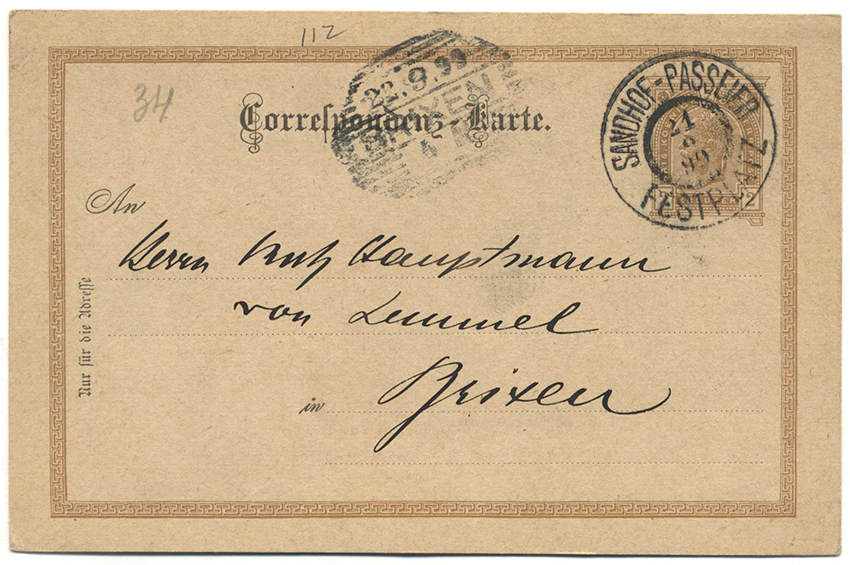 112
34
22.9.99
BRIXEN
Correspondenz-Karte.
SANDHOF-PASSEIER
21
9
99
FESTPLATZ
2
An
Herrn Hauptmann
von Lemmel
in Brixen
Nur für die Adresse